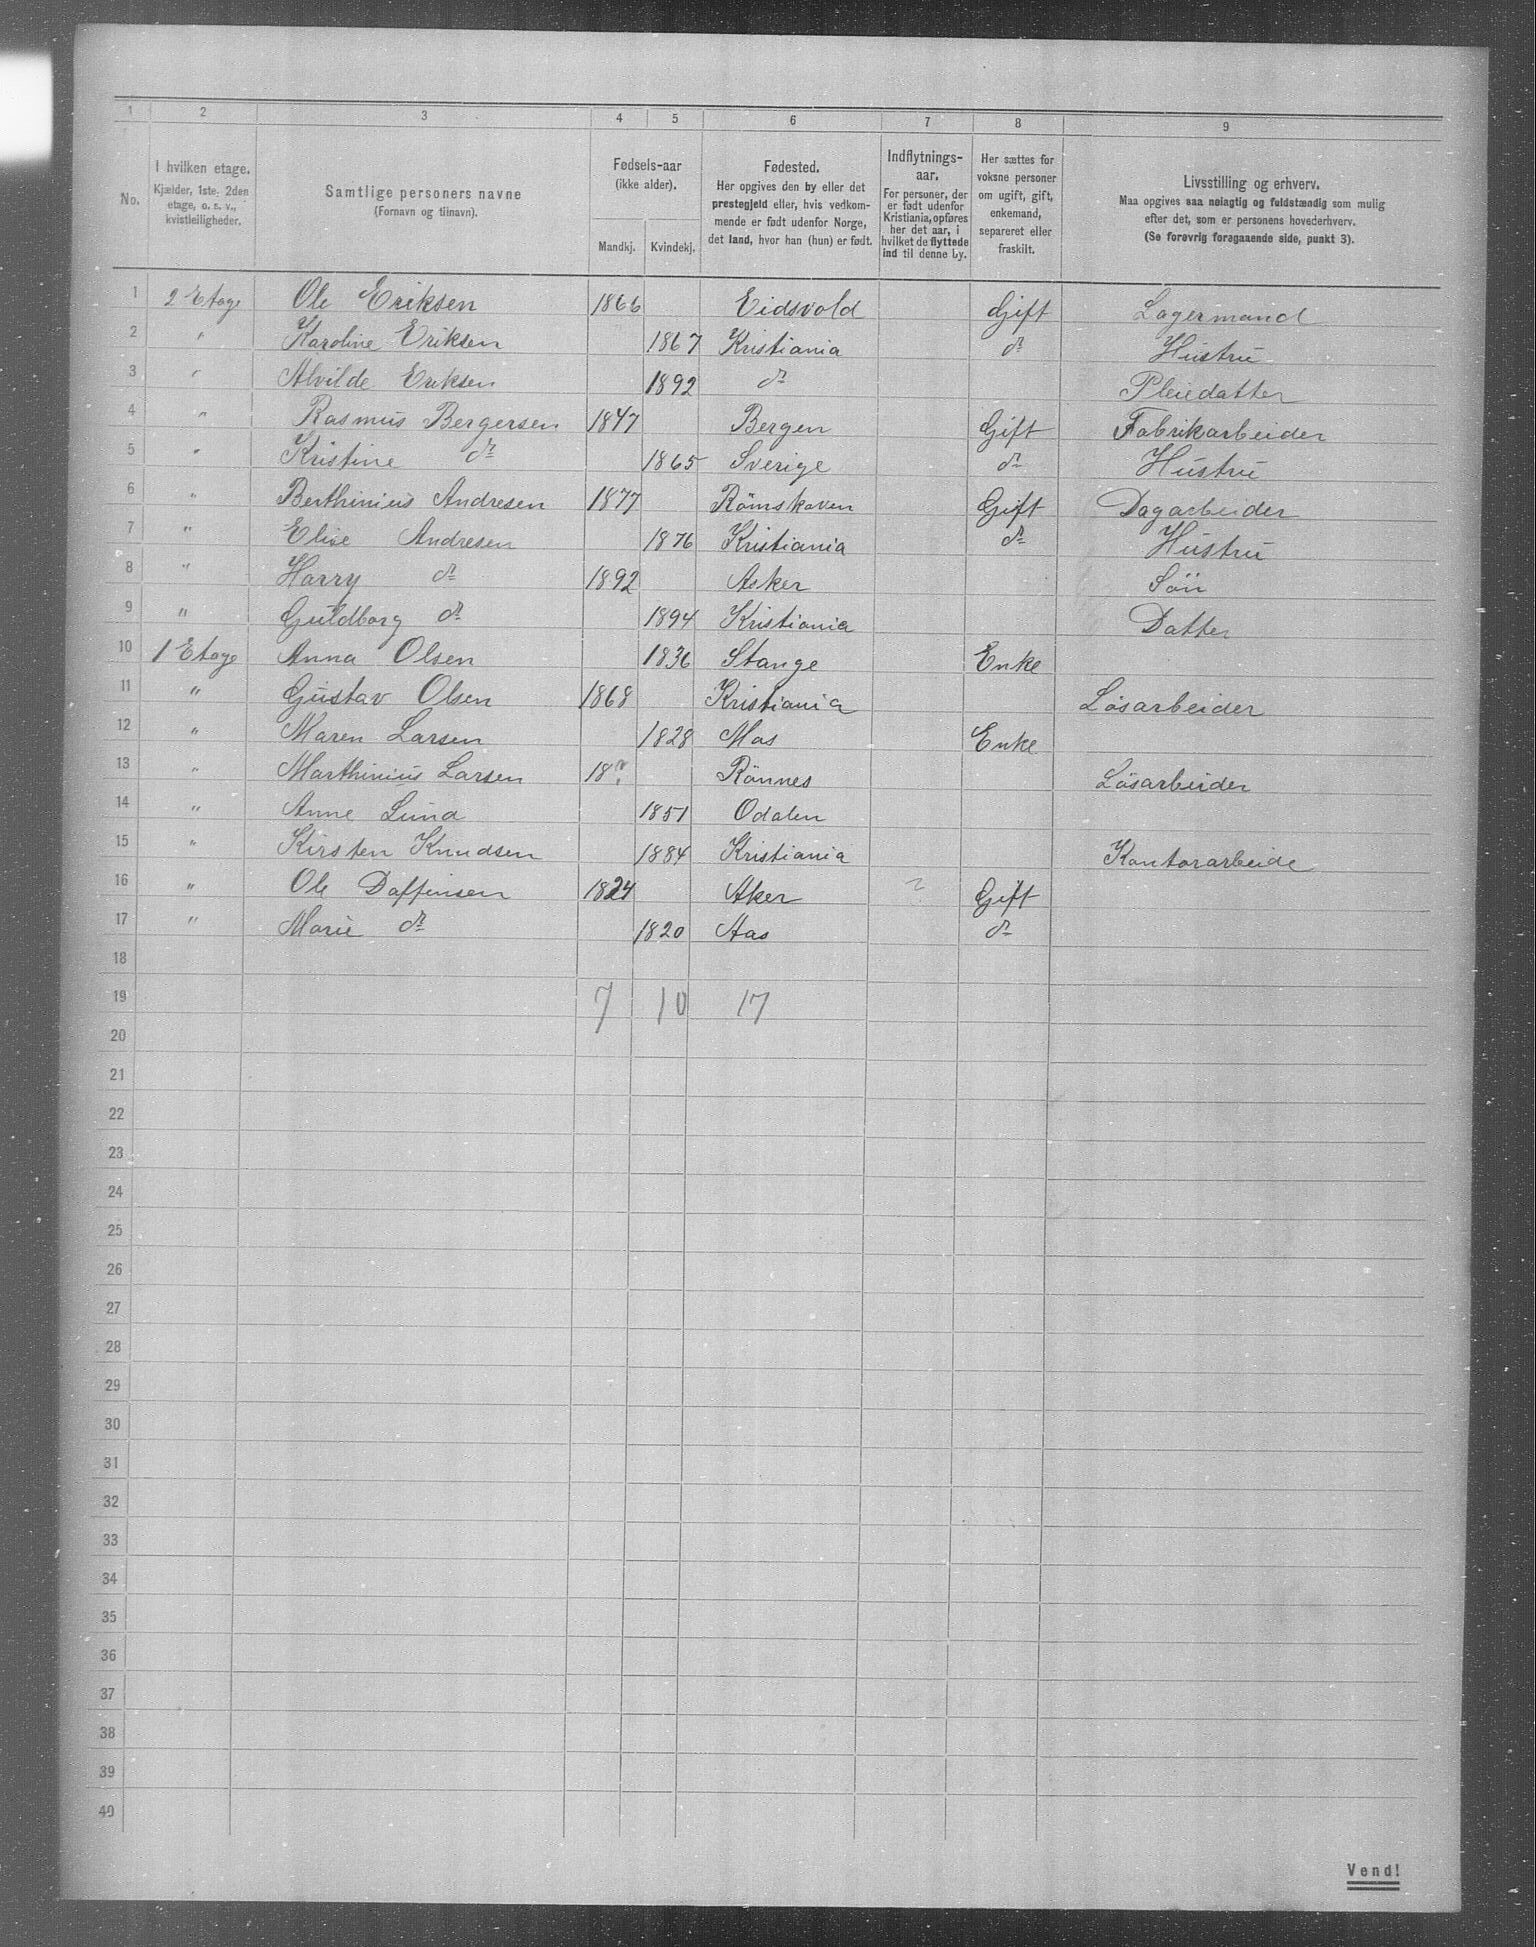 1 2 3 4 5 6 7 8 9
No.
I hvilken etage.
Kjælder, 1ste, 2den
etage, o. s. v.,
kvistleiligheder.
Samtlige personers navne
(Fornavn og tilnavn).
Fødsels-aar
(ikke alder).
Mandkj. Kvindekj.
Fødested.
Her opgives den by eller det
prestegjeld eller, hvis vedkom-
mende er født udenfor Norge,
det land, hvor han (hun) er født.
Indflytnings-
aar.
For personer, der
er født udenfor
Kristiania, opføres
her det aar, i
hvilket de flyttede
ind til denne by.
Her sættes for
voksne personer
om ugift, gift,
enkemand,
separeret eller
fraskilt.
Livsstilling og erhverv.
Maa opgives saa nøiagtig og fuldstændig som mulig
efter det, som er personens hovederhverv.
(Se forøvrig foregaaende side, punkt 3).
1 2 Etage Ole Eriksen 1866 Eidsvold Gift Lagermand
2 " Karoline Eriksen 1867 Kristiania do Hustru
3 " Alvilde Eriksen 1892 do Pleiedatter
4 " Rasmus Bergersen 1847 Bergen Gift Fabrikarbeider
5 " Kristine do 1865 Sverige do Hustru
6 " Berthinius Andresen 1877 Römskoven Gift Dagarbeider
7 " Elise Andresen 1876 Kristiania do Hustru
8 " Harry do 1892 Asker Sön
9 " Guldborg do 1894 Kristiania Datter
10 1 Etage Anna Olsen 1836 Stange Enke
11 " Gustav Olsen 1868 Kristiania Lösarbeider
12 " Maren Larsen 1828 Enke
13 " Marthinius Larsen 18? Rönnes Lösarbeider
14 " Anne Lund 1851 Odalen
15 " Kirsten Knudsen 1884 Kristiania Kontorarbeide
16 " Ole Daffinsen 1824 Aker ? Gift
17 " Marie do 1820 Aas do
18
19 7 10 17
20
21
22
23
24
25
26
27
28
29
30
31
32
33
34
35
36
37
38
39
40
Vend!